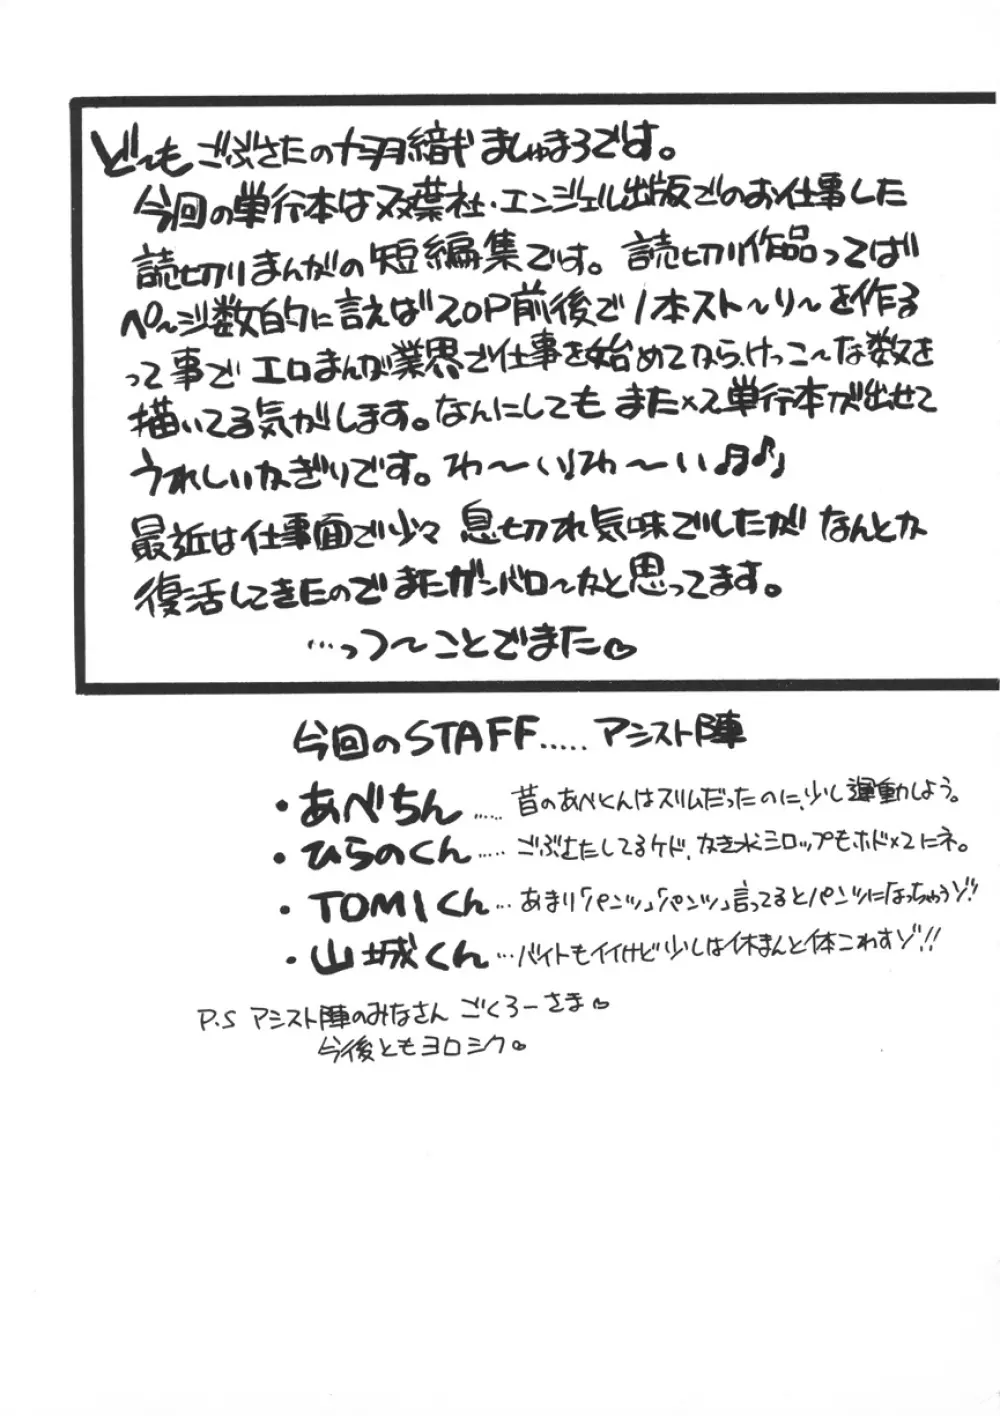 ど〜も ごぶさたの ましゅまろです。
今回の単行本は双葉社・エンジェル出版でのお仕事した
読切りまんがの短編集です。読切り作品ってば
ペ〜ジ数的に言えば20P前後で1本スト〜リ〜を作る
って事で エロまんが業界で仕事を始めてから、けっこ〜な数を
描いてる気がします。なんにしても また×2単行本が出せて
うれしいかぎりです。わ〜い♪わ〜い♪♪
最近は仕事面で少々 息切れ気味でしたが なんとか
復活してきたのでまたガンバロ〜かと思ってます。
…っつ〜ことでまた♡
今回のSTAFF..... アシスト陣
・あべちん…… 昔のあべくんはスリムだったのに、少し運動しよう。
・ひらのくん…… ごぶさたしてるケド、かき氷シロップもホド×2にネ。
・TOMIくん… あまり「パンツ」「パンツ」言ってるとパンツになっちゃうゾ!!
・山城くん… バイトもイイけど少しは休まんと体こわすゾ!!
P.S アシスト陣のみなさん ごくろーさま♡
今後ともヨロシク♡